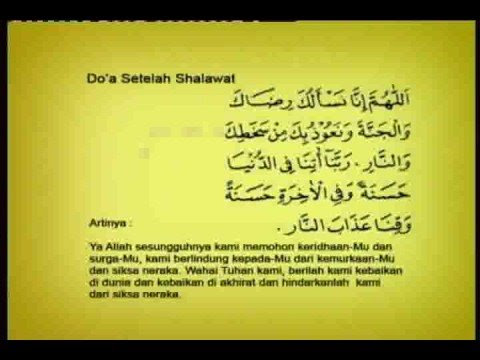 Do'a Setelah Shalawat
اَللّٰهُمَّ اِنَّا نَسْأَلُكَ رِضَاكَ
وَالْجَنَّةَ وَنَعُوْذُبِكَ مِنْ سَخَطِكَ
وَالنَّارِ. رَبَّنَا أٰتِنَا فِى الدُّنْيَا
حَسَنَةً وَفِي الْاٰخِرَةِ حَسَنَةً
وَقِنَا عَذَابَ النَّارِ.
Artinya :
Ya Allah sesungguhnya kami memohon keridhaan-Mu dan
surga-Mu, kami berlindung kepada-Mu dari kemurkaan-Mu
dan siksa neraka. Wahai Tuhan kami, berilah kami kebaikan
di dunia dan kebaikan di akhirat dan hindarkanlah kami
dari siksa neraka.